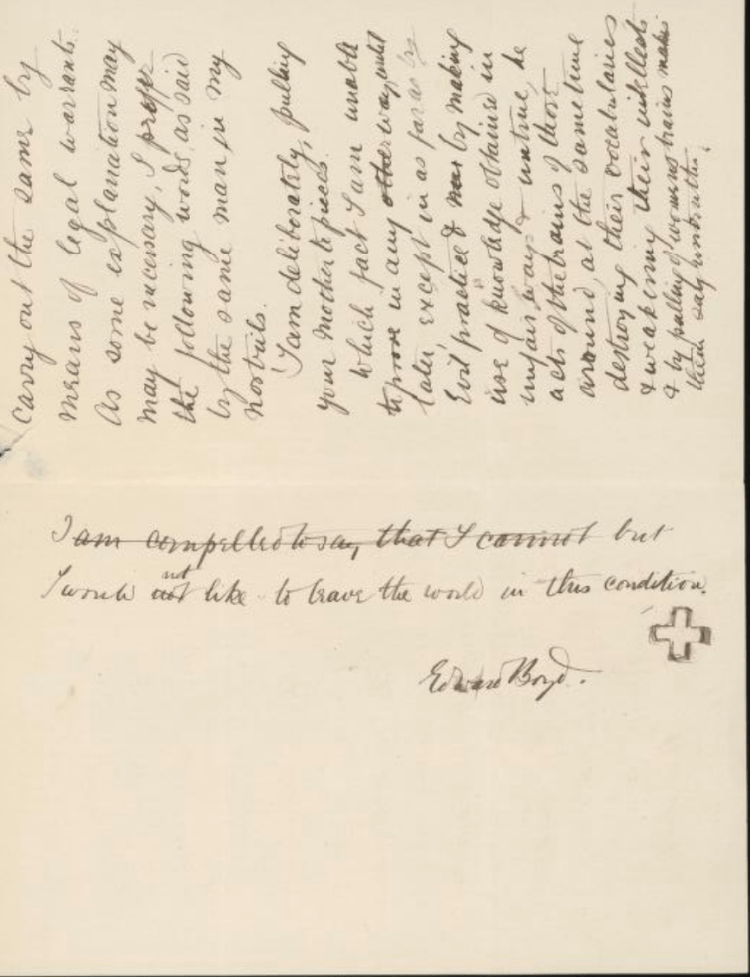 carry out the same by
means of legal warrants.
As some explanation may
may be necessary, I prefer
the following words as said
by the same man in my
nostrils.
"I am deliberately, pulling
your Mother to pieces.
which fact I am unable
to prove in any other way until
later except in as far as by
Evil practice & by making
use of knowledge obtained in
unfair ways & untrue, he
acts of the brains of those
around, at the same time
destroying their vocabularies
& weakening their intellects
& by pulling of womens brains makes
them
I am compelled to say, that I cannot but
I would not not like to leave the world in this condition.
Edward Boyd.